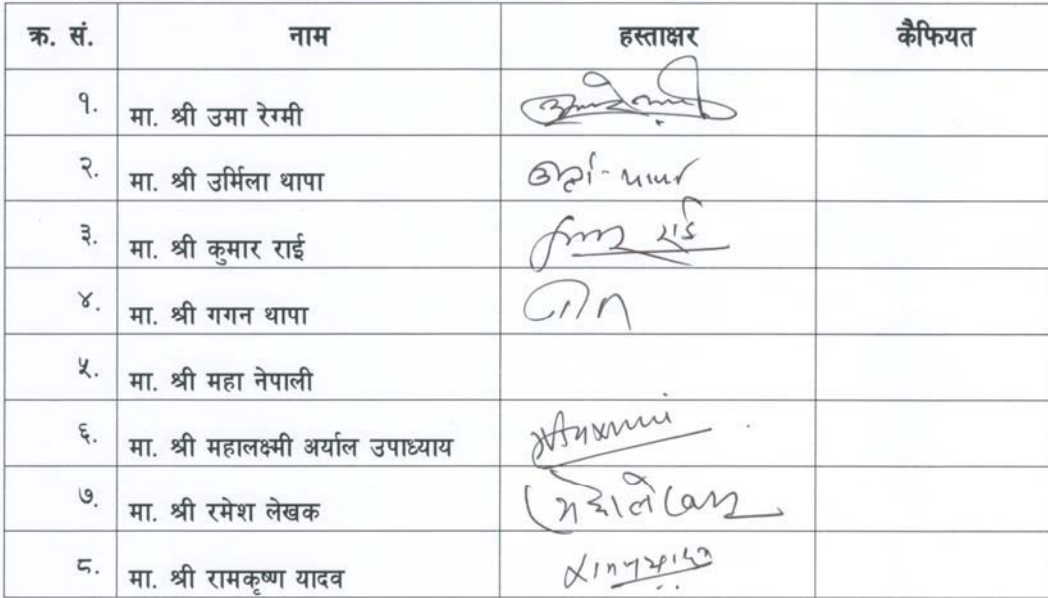 क्र. सं. नाम हस्ताक्षर कैफियत
१. मा. श्री उमा रेग्मी
२. मा. श्री उर्मिला थापा
३. मा. श्री कुमार राई राई
४. मा. श्री गगन थापा
५. मा. श्री महा नेपाली
६. मा. श्री महालक्ष्मी अर्याल उपाध्याय
७. मा. श्री रमेश लेखक
८. मा. श्री रामकृष्ण यादव